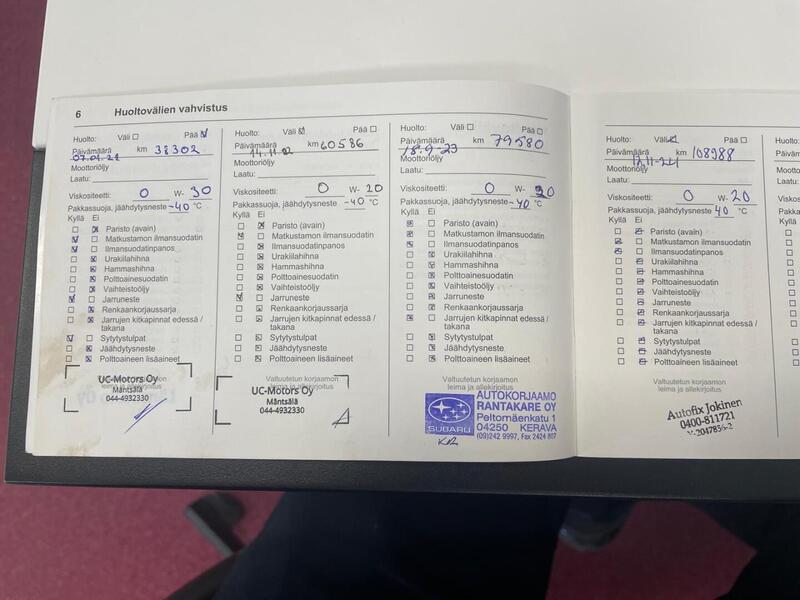 6 Huoltovälien vahvistus
Huolto: Väli Pää
Päivämäärä km 38302
07.01.21
Moottoriöljy
Laatu:
Viskositeetti: 0 W- 30
Pakkassuoja, jäähdytysneste -40 °C
Kyllä Ei
Paristo (avain)
Matkustamon ilmansuodatin
Ilmansuodatinpanos
Urakiilahihna
Hammashihna
Polttoainesuodatin
Vaihteistoöljy
Jarruneste
Renkaankorjaussarja
Jarrujen kitkapinnat edessä /
takana
Sytytystulpat
Jäähdytysneste
Polttoaineen lisäaineet
Valtuutetun korjaamon
leima ja allekirjoitus
UC-Motors Oy
Mäntsälä
044-4932330
Huolto: Väli Pää
Päivämäärä km 60586
14.11.
Moottoriöljy
Laatu:
Viskositeetti: 0 W- 20
Pakkassuoja, jäähdytysneste -40 °C
Kyllä Ei
Paristo (avain)
Matkustamon ilmansuodatin
Ilmansuodatinpanos
Urakiilahihna
Hammashihna
Polttoainesuodatin
Vaihteistoöljy
Jarruneste
Renkaankorjaussarja
Jarrujen kitkapinnat edessä /
takana
Sytytystulpat
Jäähdytysneste
Polttoaineen lisäaineet
Valtuutetun korjaamon
leima ja allekirjoitus
UC-Motors Oy
Mäntsälä
044-4932330
Huolto: Väli Pää
Päivämäärä km 79580
18.9-23
Moottoriöljy
Laatu:
Viskositeetti: 0 W- 20
Pakkassuoja, jäähdytysneste -40 °C
Kyllä Ei
Paristo (avain)
Matkustamon ilmansuodatin
Ilmansuodatinpanos
Urakiilahihna
Hammashihna
Polttoainesuodatin
Vaihteistoöljy
Jarruneste
Renkaankorjaussarja
Jarrujen kitkapinnat edessä /
takana
Sytytystulpat
Jäähdytysneste
Polttoaineen lisäaineet
Valtuutetun korjaamon
leima ja allekirjoitus
AUTOKORJAAMO
RANTAKARE OY
Peltomäenkatu 1
04250 KERAVA
(09)242 9997, Fax 2424 807
SUBARU
Huolto: Väli Pää
Päivämäärä km 108988
Moottoriöljy
Laatu:
Viskositeetti: 0 W- 20
Pakkassuoja, jäähdytysneste 40 °C
Kyllä Ei
Paristo (avain)
Matkustamon ilmansuodatin
Ilmansuodatinpanos
Urakiilahihna
Hammashihna
Polttoainesuodatin
Vaihteistoöljy
Jarruneste
Renkaankorjaussarja
Jarrujen kitkapinnat edessä /
takana
Sytytystulpat
Jäähdytysneste
Polttoaineen lisäaineet
Valtuutetun korjaamon
leima ja allekirjoitus
Autofix Jokinen
0400-811721